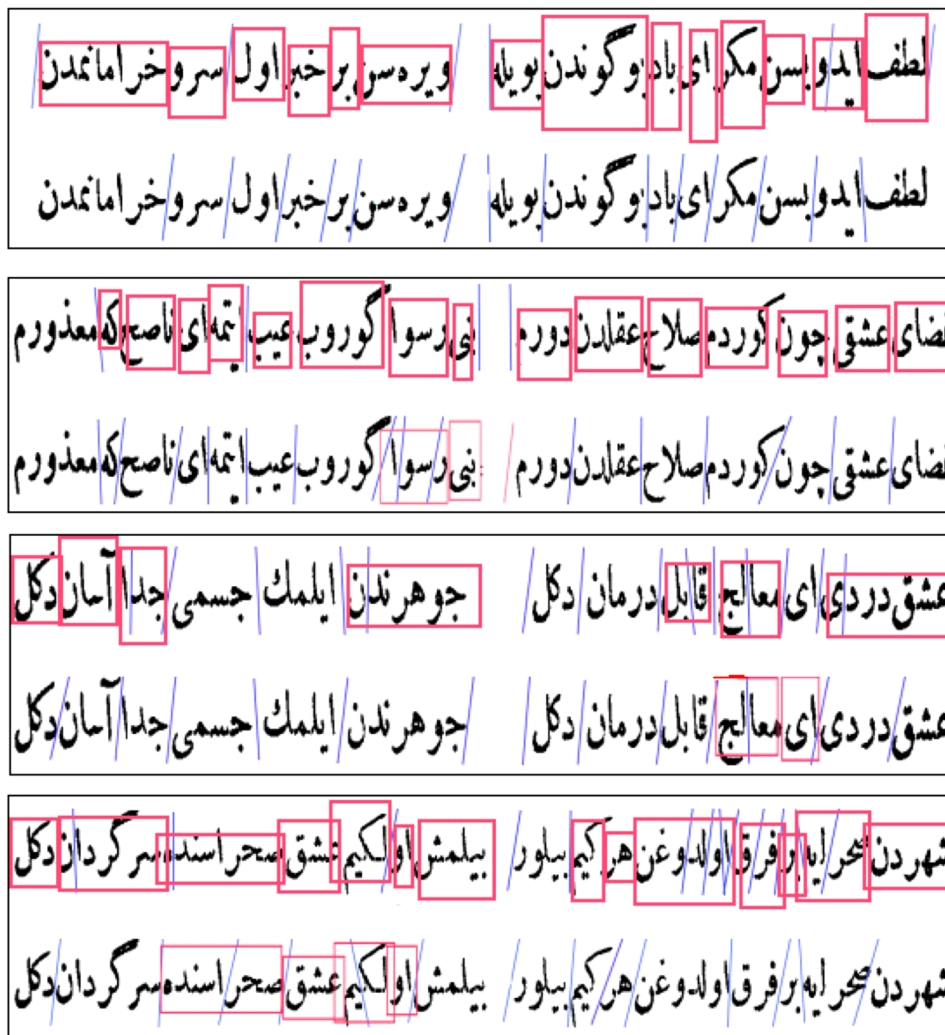 لطف ایدوبسن مکر ای باد بو گوندن بویله ویره سن بر خبر اول سرو خرامانمدن
لطف ایدوبسن مکر ای باد بو گوندن بویله ویره سن بر خبر اول سرو خرامانمدن
ضای عشقی چون کوردم صلاح عقلدن دورم بنی رسوا گوروب عیب ایتمه ای ناصح که معذورم
ضای عشقی چون کوردم صلاح عقلدن دورم بنی رسوا گوروب عیب ایتمه ای ناصح که معذورم
عشق دردی ای معالج قابل درمان دکل جوهرندن ایلمك جسمی جدا آسان دکل
عشق دردی ای معالج قابل درمان دکل جوهرندن ایلمك جسمی جدا آسان دکل
شهردن صحرایه بر فرق اولدوغن هر کیم بیلور بیلمش اولکیم عشق صحراسنده سرگردان دکل
شهردن صحرایه بر فرق اولدوغن هر کیم بیلور بیلمش اولکیم عشق صحراسنده سرگردان دکل